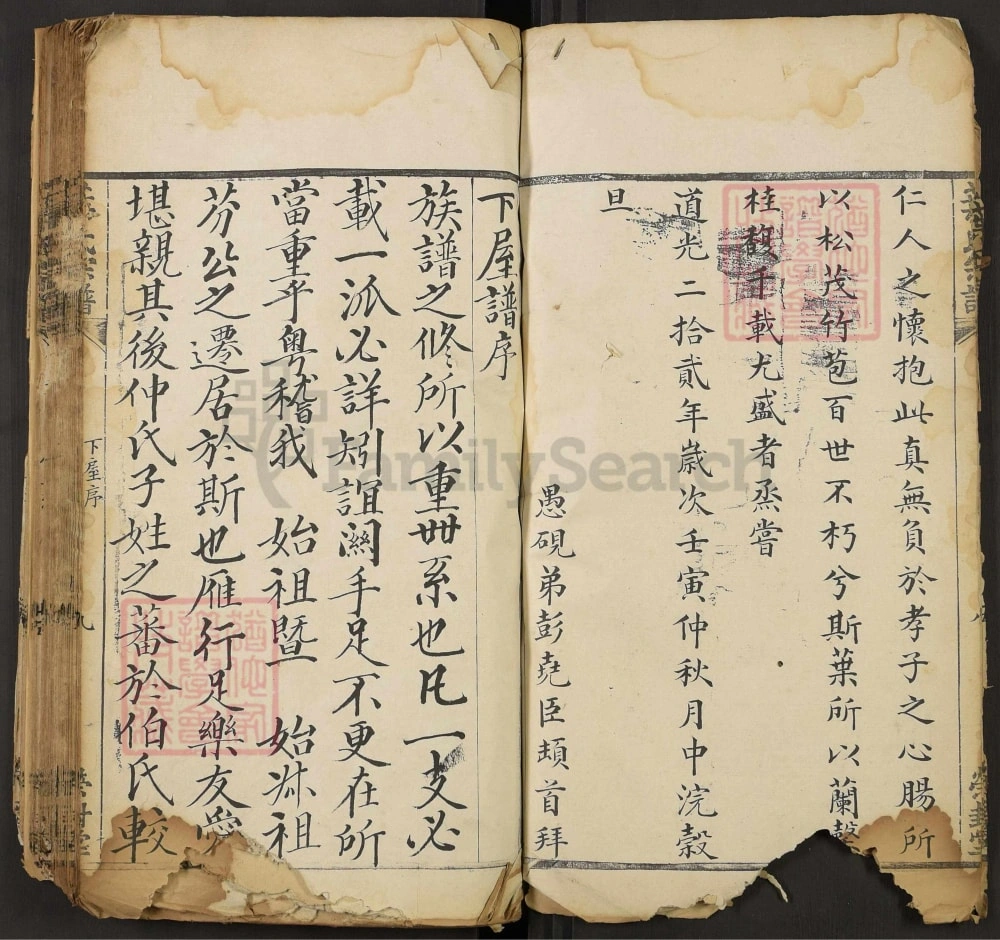 仁人之懷抱此真無負於孝子之心腸所
以松茂竹苞百世不朽兮斯葉所以蘭馨
桂馥千載尤盛者烝嘗
道光二拾貳年歲次壬寅仲秋月中浣穀
旦
愚硯弟彭堯臣頓首拜
下屋譜序
族譜之修所以重丗系也凡一支必
載一派必詳矧誼關手足不更在所
當重乎粵稽我 始祖暨 始叔祖
芬公之遷居於斯也雁行足樂友愛
堪親其後仲氏子姓之蕃於伯氏較
下屋序
九
FamilySearch